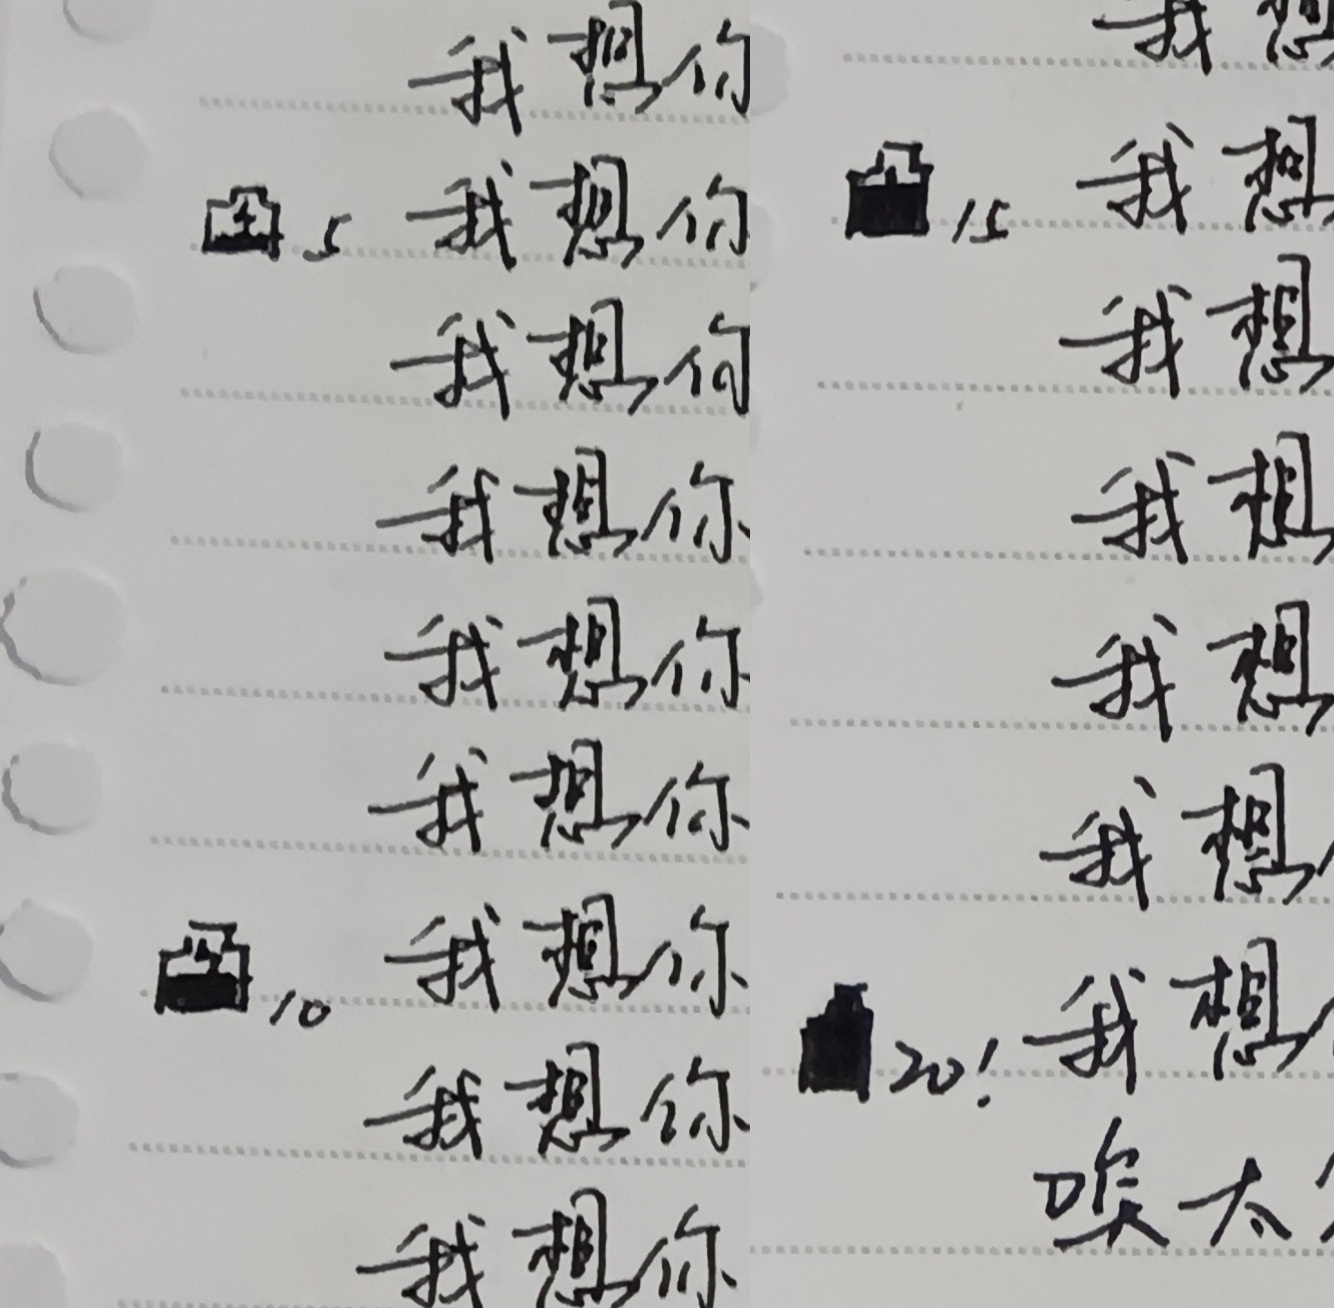 我想你
5 我想你
我想你
我想你
我想你
我想你
10 我想你
我想你
我想你
我想
15 我想
我想
我想
我想
我想
20! 我想
唉太